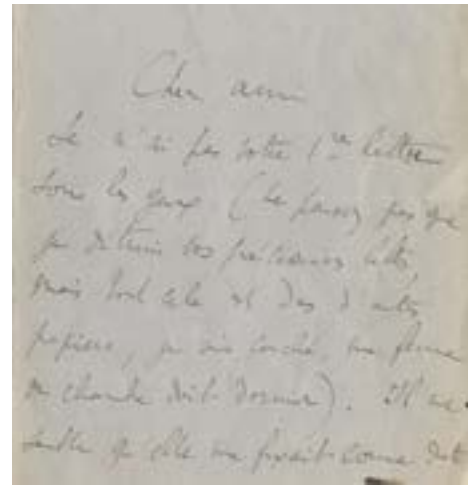 Cher ami
Je n'ai pas votre 1re lettre
sous les yeux (ne pensez pas que
je détruis vos précieuses lettres,
mais tout cela est dans d'autres
papiers, je suis couché, ma femme
de chambre doit dormir). Il me
semble qu'elle me